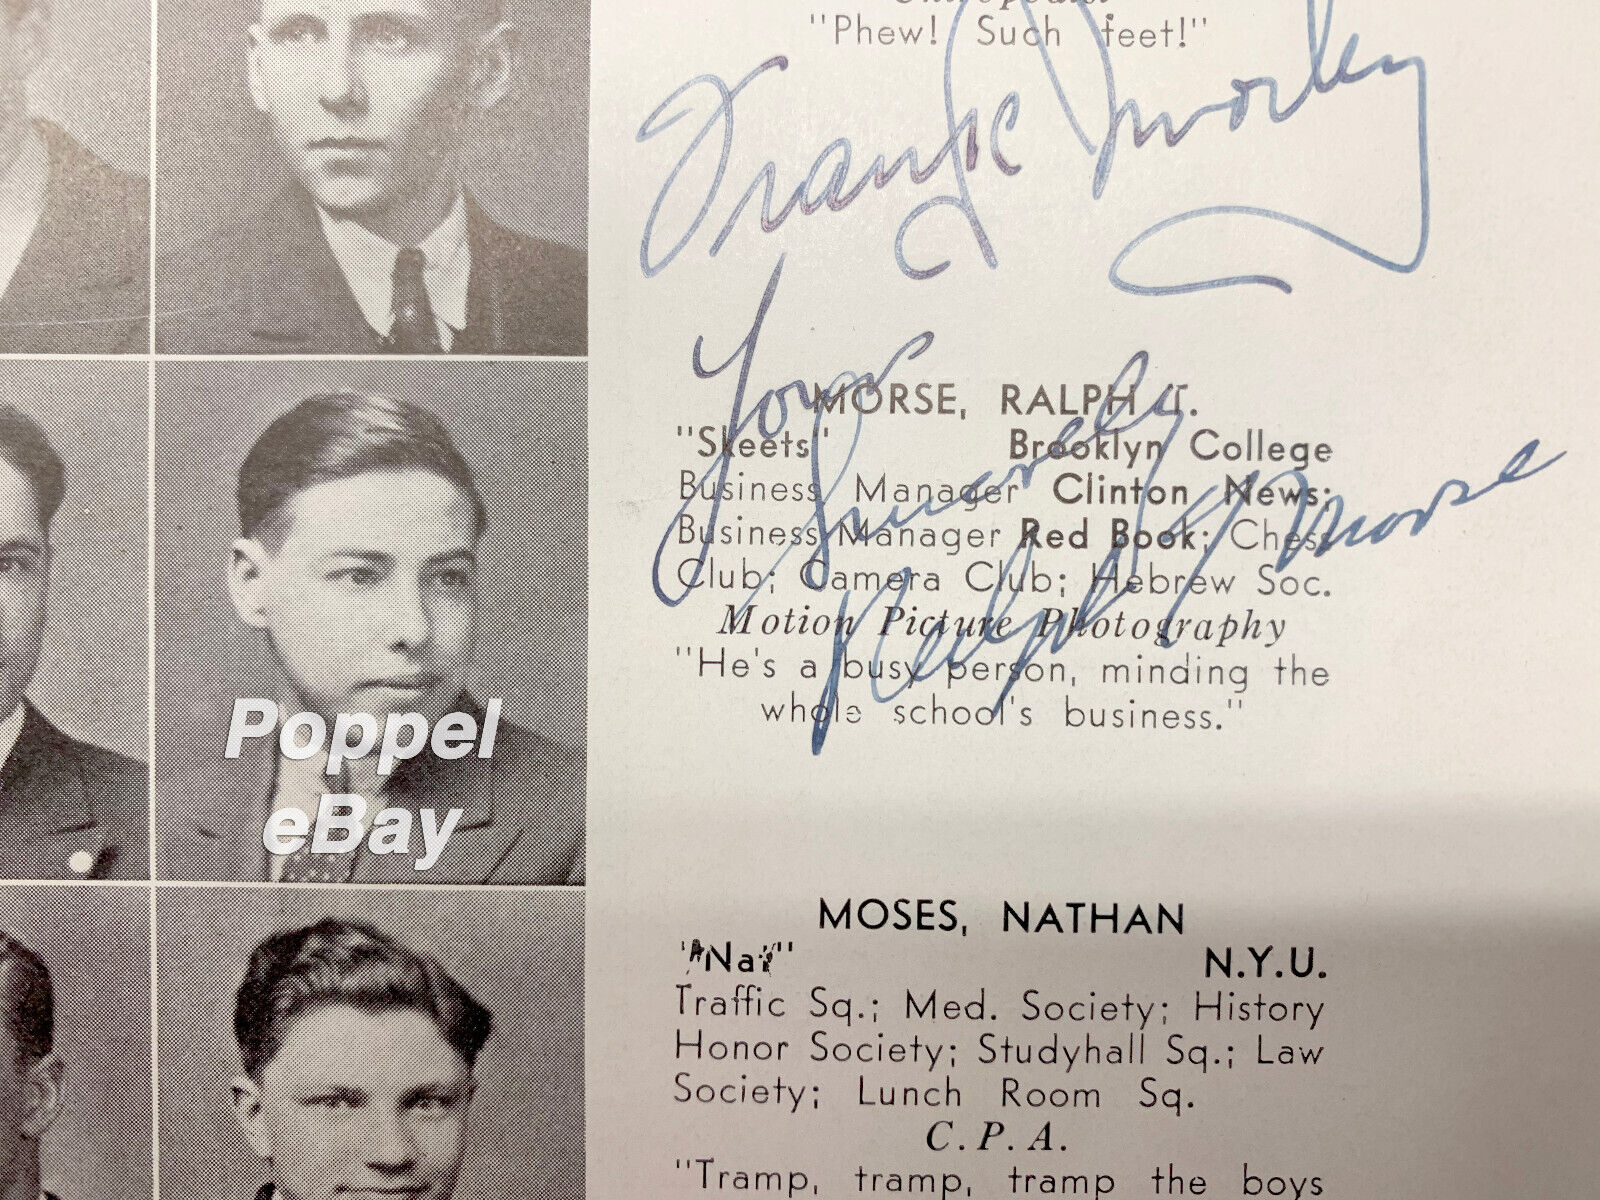 "Phew! Such feet!"
Frank Morley
Yours
Sincerely
Ralph Morse
MORSE, RALPH T.
"Skeets" Brooklyn College
Business Manager Clinton News;
Business Manager Red Book; Chess
Club; Camera Club; Hebrew Soc.
Motion Picture Photography
"He's a busy person, minding the
whole school's business."
MOSES, NATHAN
"Nat" N.Y.U.
Traffic Sq.; Med. Society; History
Honor Society; Studyhall Sq.; Law
Society; Lunch Room Sq.
C. P. A.
"Tramp, tramp, tramp the boys
Poppel
eBay